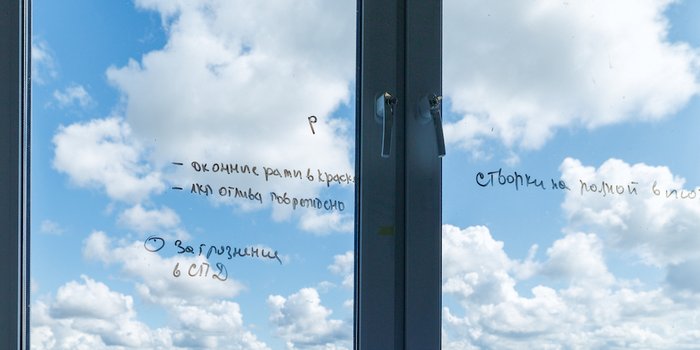 р
- оконные рамы в краске
- лкп отлива повреждено
Загрязнение
в СПД
створки на разной высот